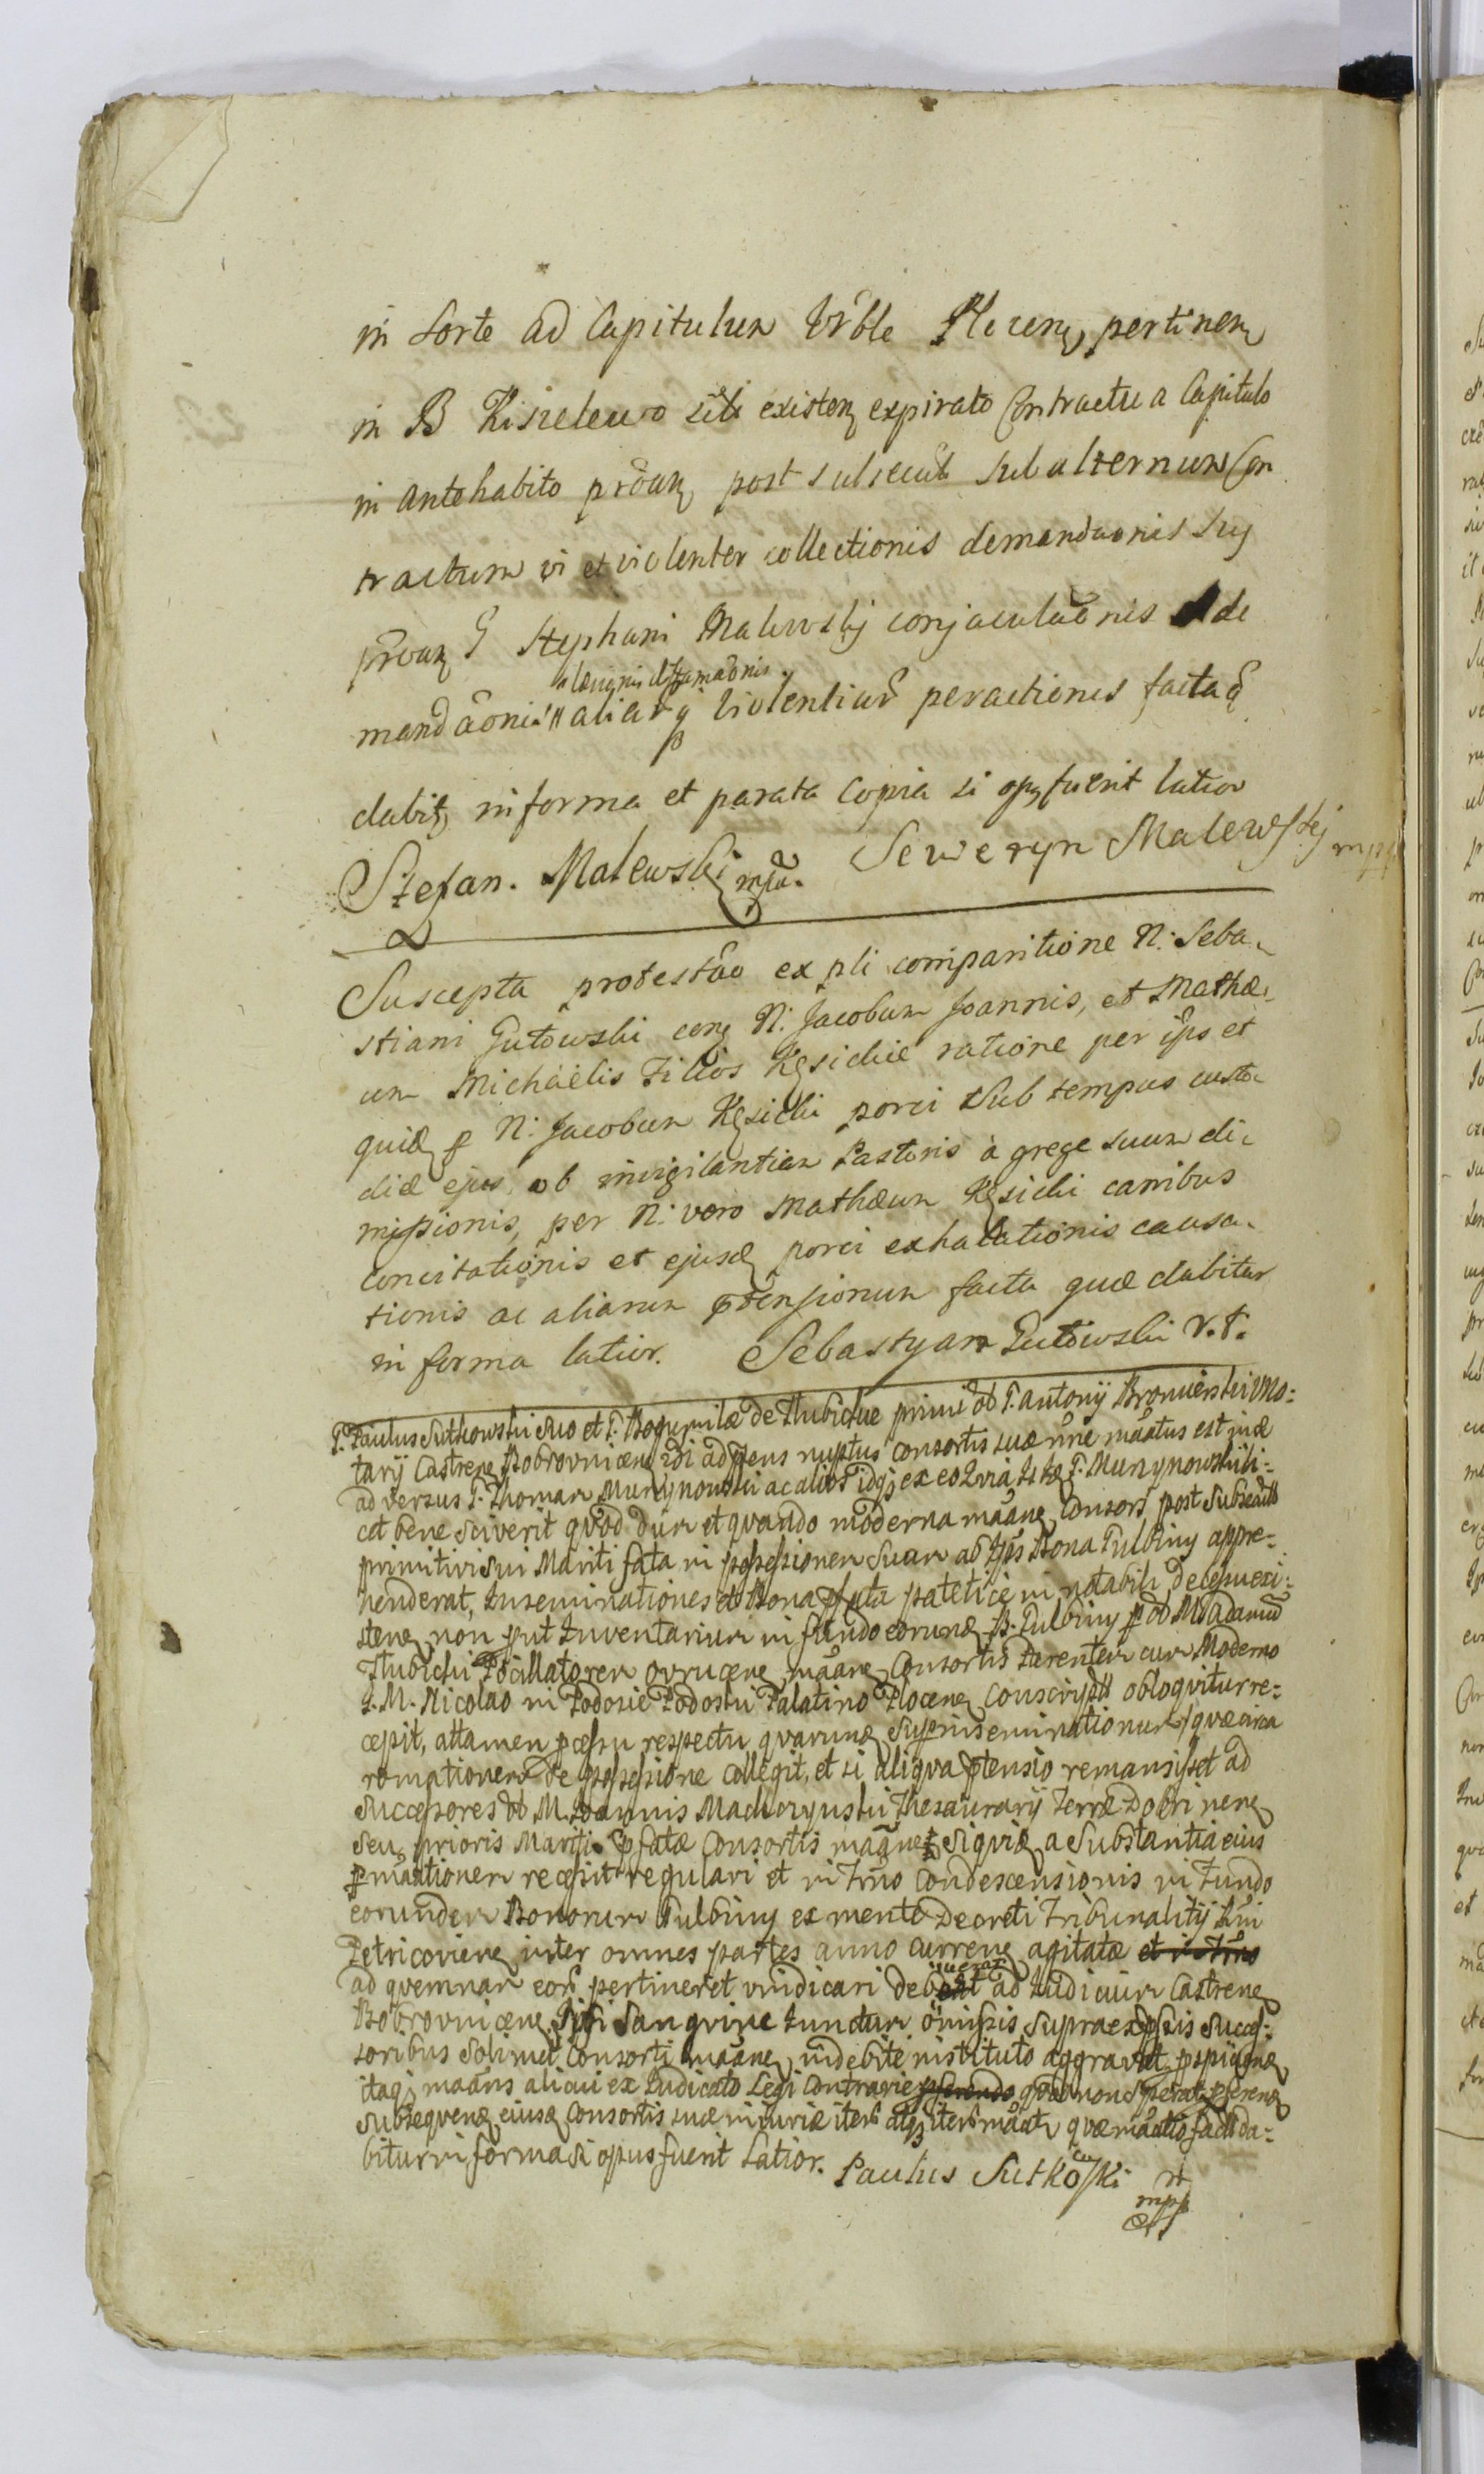 in Sorte ad Capitulum Vrble Plocen pertinen
in B Kisielewo siti existen expirato Contractu a Capitulo
in antehabito prouen post subsecut subalternum Con
tractum vi et violenter collectionis demandaonis suy
proven G Stephani Malewskj conjaculaonis de
mandaonis aliarq violentiar peractiones factaq
dabit, in forma et parata copia si opus fuerit latior
Stefan. Malewski mpa. Seweryn Malewskj mpp
Suscepta protestao ex pli comparitione N: Seba-
stiani Gutowski con N: Jacobum Joannis, et Mathæ-
um Michaëlis Filios Kęsickie ratione per ips et
quid p N: Jacobum Kęsicki porci sub tempus custo-
diæ ejus, ob invigilantiam Pastoris à grege suum di-
missionis, per N: vero Mathæum Kęsicki canibus
concitationis et ejusd porci exhalationis causa-
tionis ac aliarum ptensionum facta quæ dabitur
in forma latior. Sebastyan Gutowski V.T.
G. Paulus Sutkowski suo et G. Bogumilæ de Tlubickie primi od G. Antonij Bromierski No=
tarij Castren Bobrovnicen 2di ad pens nuptus Consortis suæ nne maatus est inde
adversus G. Thomam Murzynowski ac alios idq ex eo Quia Iste G. Murzynowski li=
cet bene sciverit quod dum et quando moderna maanę Consors post Subsecuts
primitivi sui Mariti fata in possessionem suam ad Ips Bona Tulbiny appre=
henderat, Inseminationes et Bona pfata patetice in notabili defectu exi=
sten non put Inventarium in fundo eorund B. Tulbiny p od M Adamu
Tlubicki Pocillatorem ovrucen maane Consortis Parentem cum Moderno
I. M. Nicolao in Podosie Podoski Palatino Plocen Conscrypts obloqvitur re=
cepit, attamen pcessu respectu qvarund Supinseminationum qvæ circa
romptionem de possessione collegit, et si aliqva ptensio remansisset ad
Successores od M. Joannis Machczynski Thesaurarij Terræ Dobrinen
seu prioris Mariti pfatæ Consortis maane siqvid a Substantia eius
p maationem recepit regulari et in Trno Condescensionis in Fundo
eorundem Bonorum Tulbiny ex mente Decreti Tribunalitij Rni
Petricovien inter omnes partes anno curren agitatæ
ad qvemnam eors pertineret vindicari debuerat ad Judicium Castren
Bobrovnicen Sangvine Junctum omissis supraexpssis Succes=
soribus Solimet Consorti maane, indebite instituto aggravat, pspiciend
itaq maans alicui ex Judicato Legi Contrarie qvod non sperat pferend
subseqven eiusd Consortis suæ iniuriæ iters atq iters maatr qvæ maatio facta da=
bitur in forma si opus fuerit Latior. Paulus Sutkoski mpp